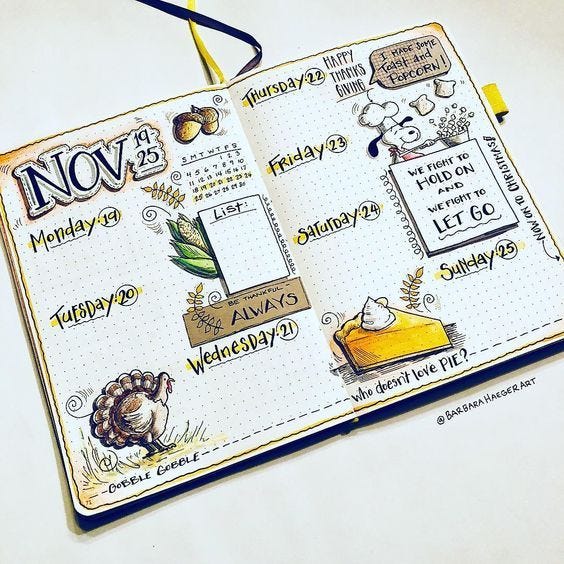 NOV 19 25
S M T W T F S
1 2 3
4 5 6 7 8 9 10
11 12 13 14 15 16 17
18 19 20 21 22 23 24
25 26 27 28 29 30
Monday·19
List:
Tuesday·20
BE THANKFUL
ALWAYS
Wednesday·21
-GOBBLE GOBBLE-
Thursday·22
HAPPY
THANKS
GIVING
I MADE SOME
TOAST AND
POPCORN!
Friday·23
WE FIGHT TO
HOLD ON
AND
WE FIGHT TO
LET GO
NOW ON TO CHRISTMAS!
Saturday·24
Sunday·25
who doesn't love PIE?
@BARBARAHAEGERART